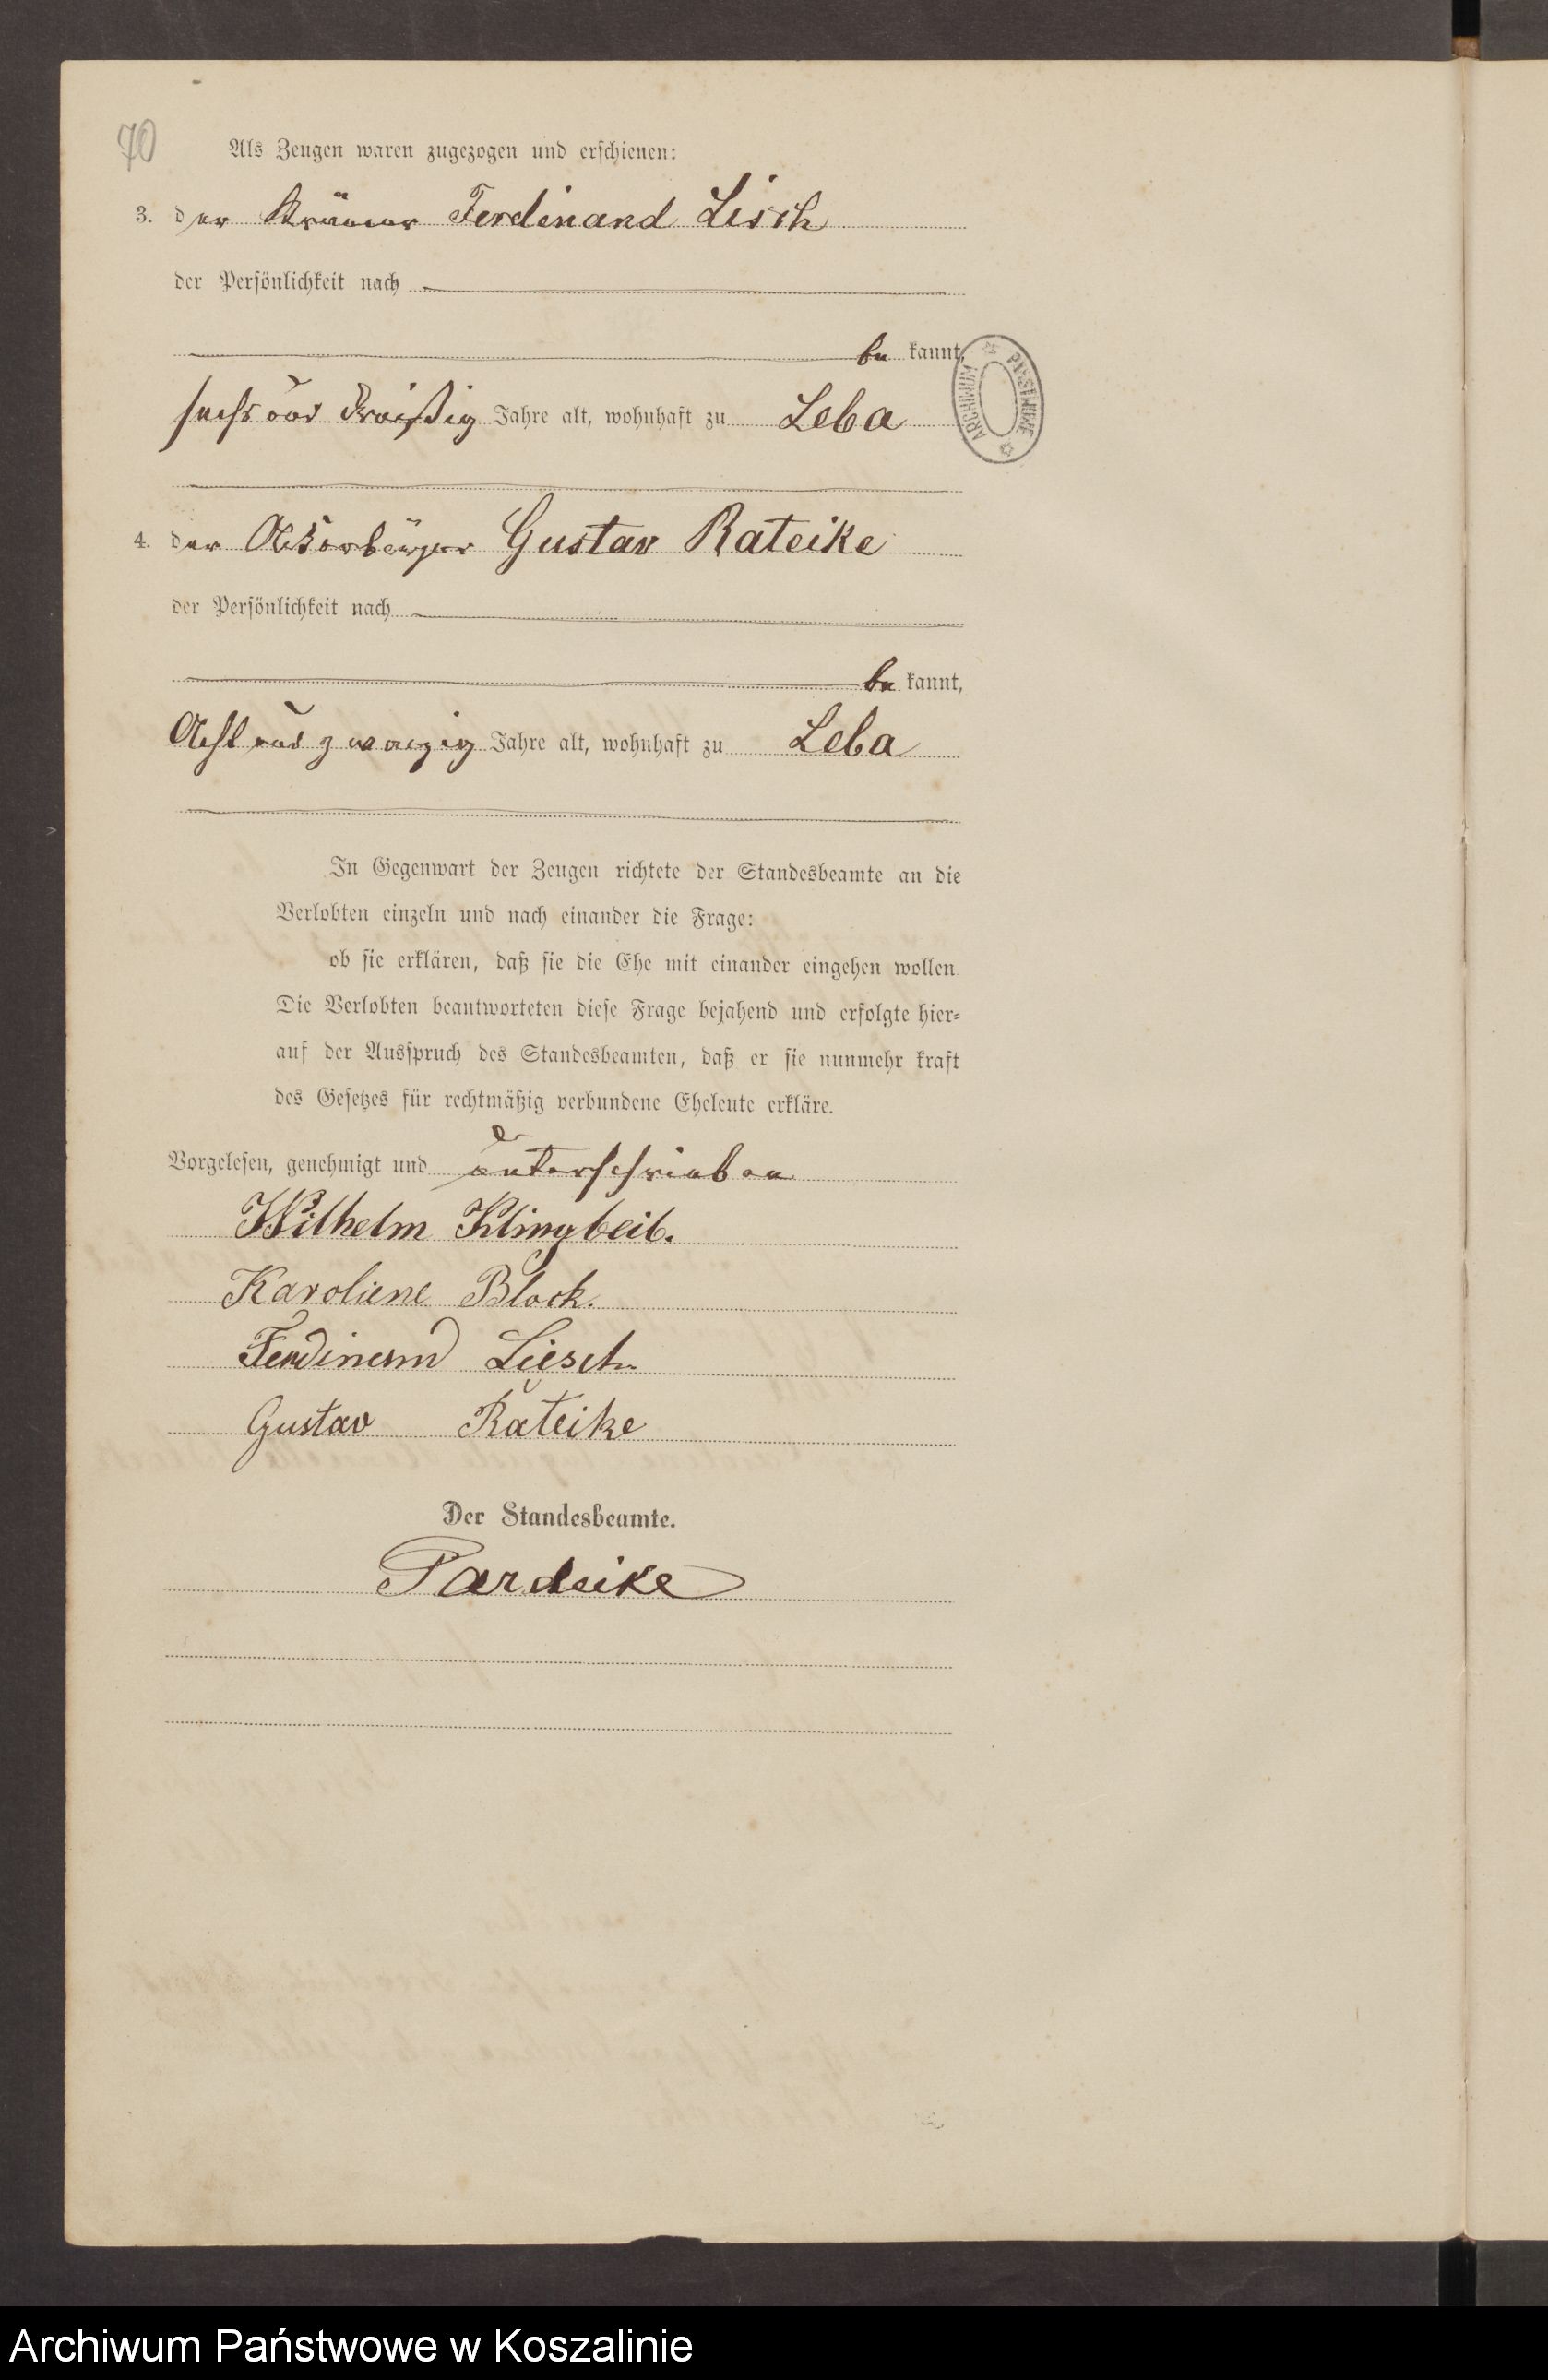 70
Als Zeugen waren zugezogen und erschienen:
3. der Krämer Ferdinand Lisch
der Persönlichkeit nach
be kannt,
sechs und dreißig Jahre alt, wohnhaft zu Leba
4. der Ackerbürger Gustav Rateike
der Persönlichkeit nach
be kannt,
Acht und zwanzig Jahre alt, wohnhaft zu Leba
In Gegenwart der Zeugen richtete der Standesbeamte an die
Verlobten einzeln und nach einander die Frage:
ob sie erklären, daß sie die Ehe mit einander eingehen wollen
Die Verlobten beantworteten diese Frage bejahend und erfolgte hier=
auf der Ausspruch des Standesbeamten, daß er sie nunmehr kraft
des Gesetzes für rechtmäßig verbundene Eheleute erkläre.
Vorgelesen, genehmigt und unterschrieben
Wilhelm Klingbeil.
Karoliene Block.
Ferdinand Liesch
Gustav Rateike
Der Standesbeamte.
Pardeike
ARCHIWUM PAŃSTWOWE
Archiwum Państwowe w Koszalinie